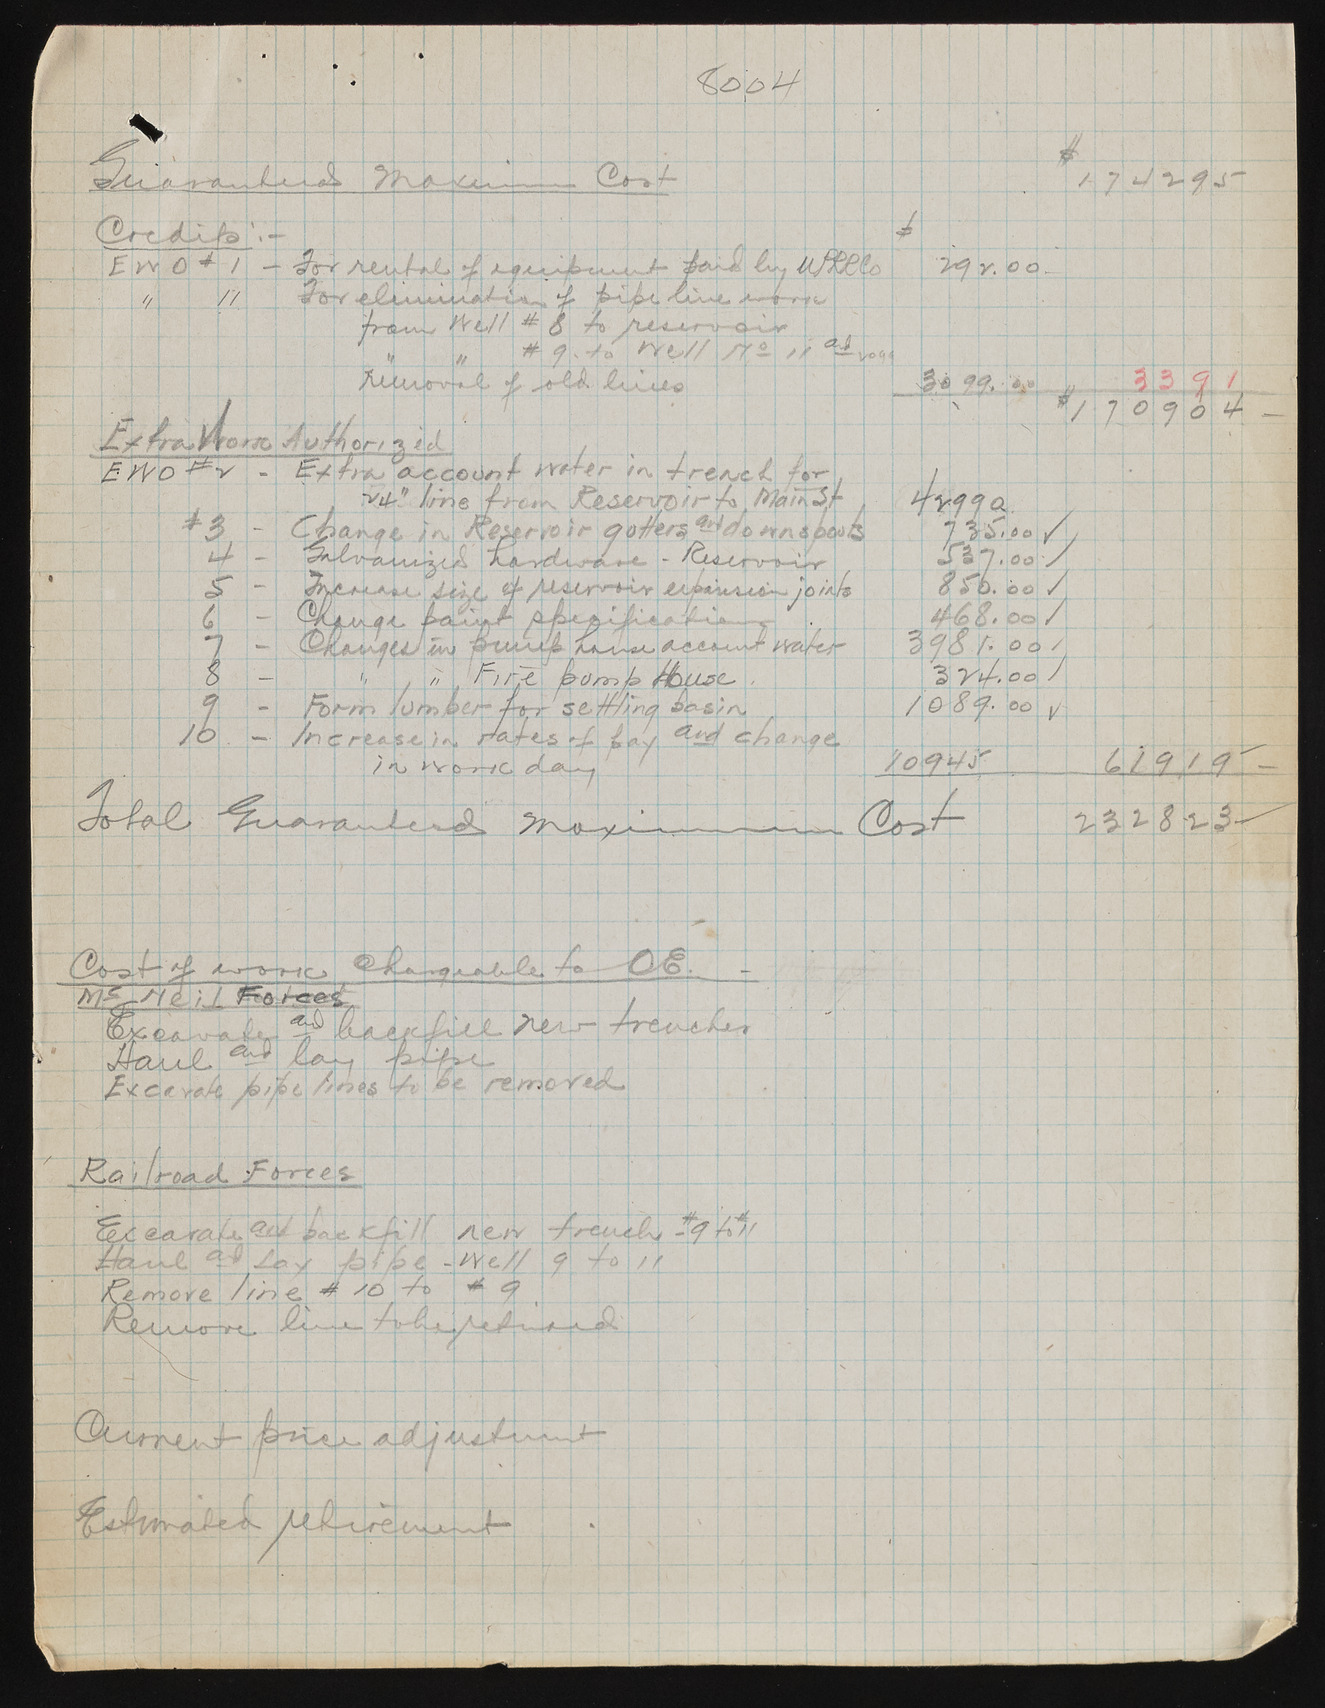 8004
$
Guaranteed Maximum Cost 174295
Credits:- $
EWO #1 - For rental of equipment paid by UPRRCo 292.00
" 11 For elimination of pipe line work
from Well #8 to reservoir
" " #9 to Well No 11 and
removal of old lines 3099.00 " 3391
$170904-
Extra Work Authorized
EWO #2 - Extra account water in trench for
24" line from Reservoir to Main St 42990
#3 - Change in Reservoir gutters and downspouts 735.00 ✓
4 - Galvanized hardware - Reservoir 537.00 ✓
5 - Increase size of reservoir expansion joints 850.00 ✓
6 - Change paint specification 468.00 ✓
7 - Changes in pump house account water 3981.00 ✓
8 - " " Fire pump House 324.00 ✓
9 - Form lumber for settling basin 1089.00 ✓
10 - Increase in rates of pay and change
in work day 10945 61919-
Total Guaranteed Maximum Cost 232823-
Cost of work Chargeable to OE. -
Mc Neil Forces
Excavate and backfill new trenches
Haul and lay pipe
Excavate pipe lines to be removed
Railroad Forces
Excavate and backfill new trench - #9 to #11
Haul and Lay pipe - Well 9 to 11
Remove line #10 to #9
Remove line to be retired
Current price adjustment
Estimated retirement